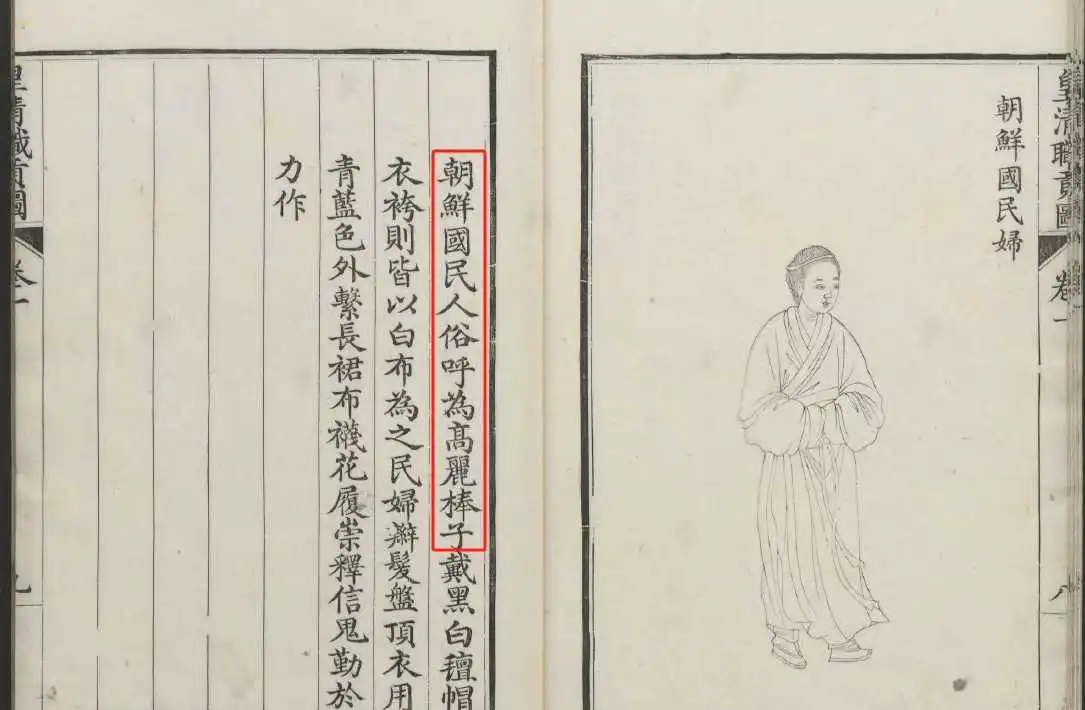 皇清職貢圖 卷一 八
朝鮮國民婦
朝鮮國民人俗呼為髙麗棒子戴黑白氊帽
衣袴則皆以白布為之民婦辮髮盤頂衣用
青藍色外繫長裙布襪花履崇釋信鬼勤於
力作
皇清職貢圖 卷一 九